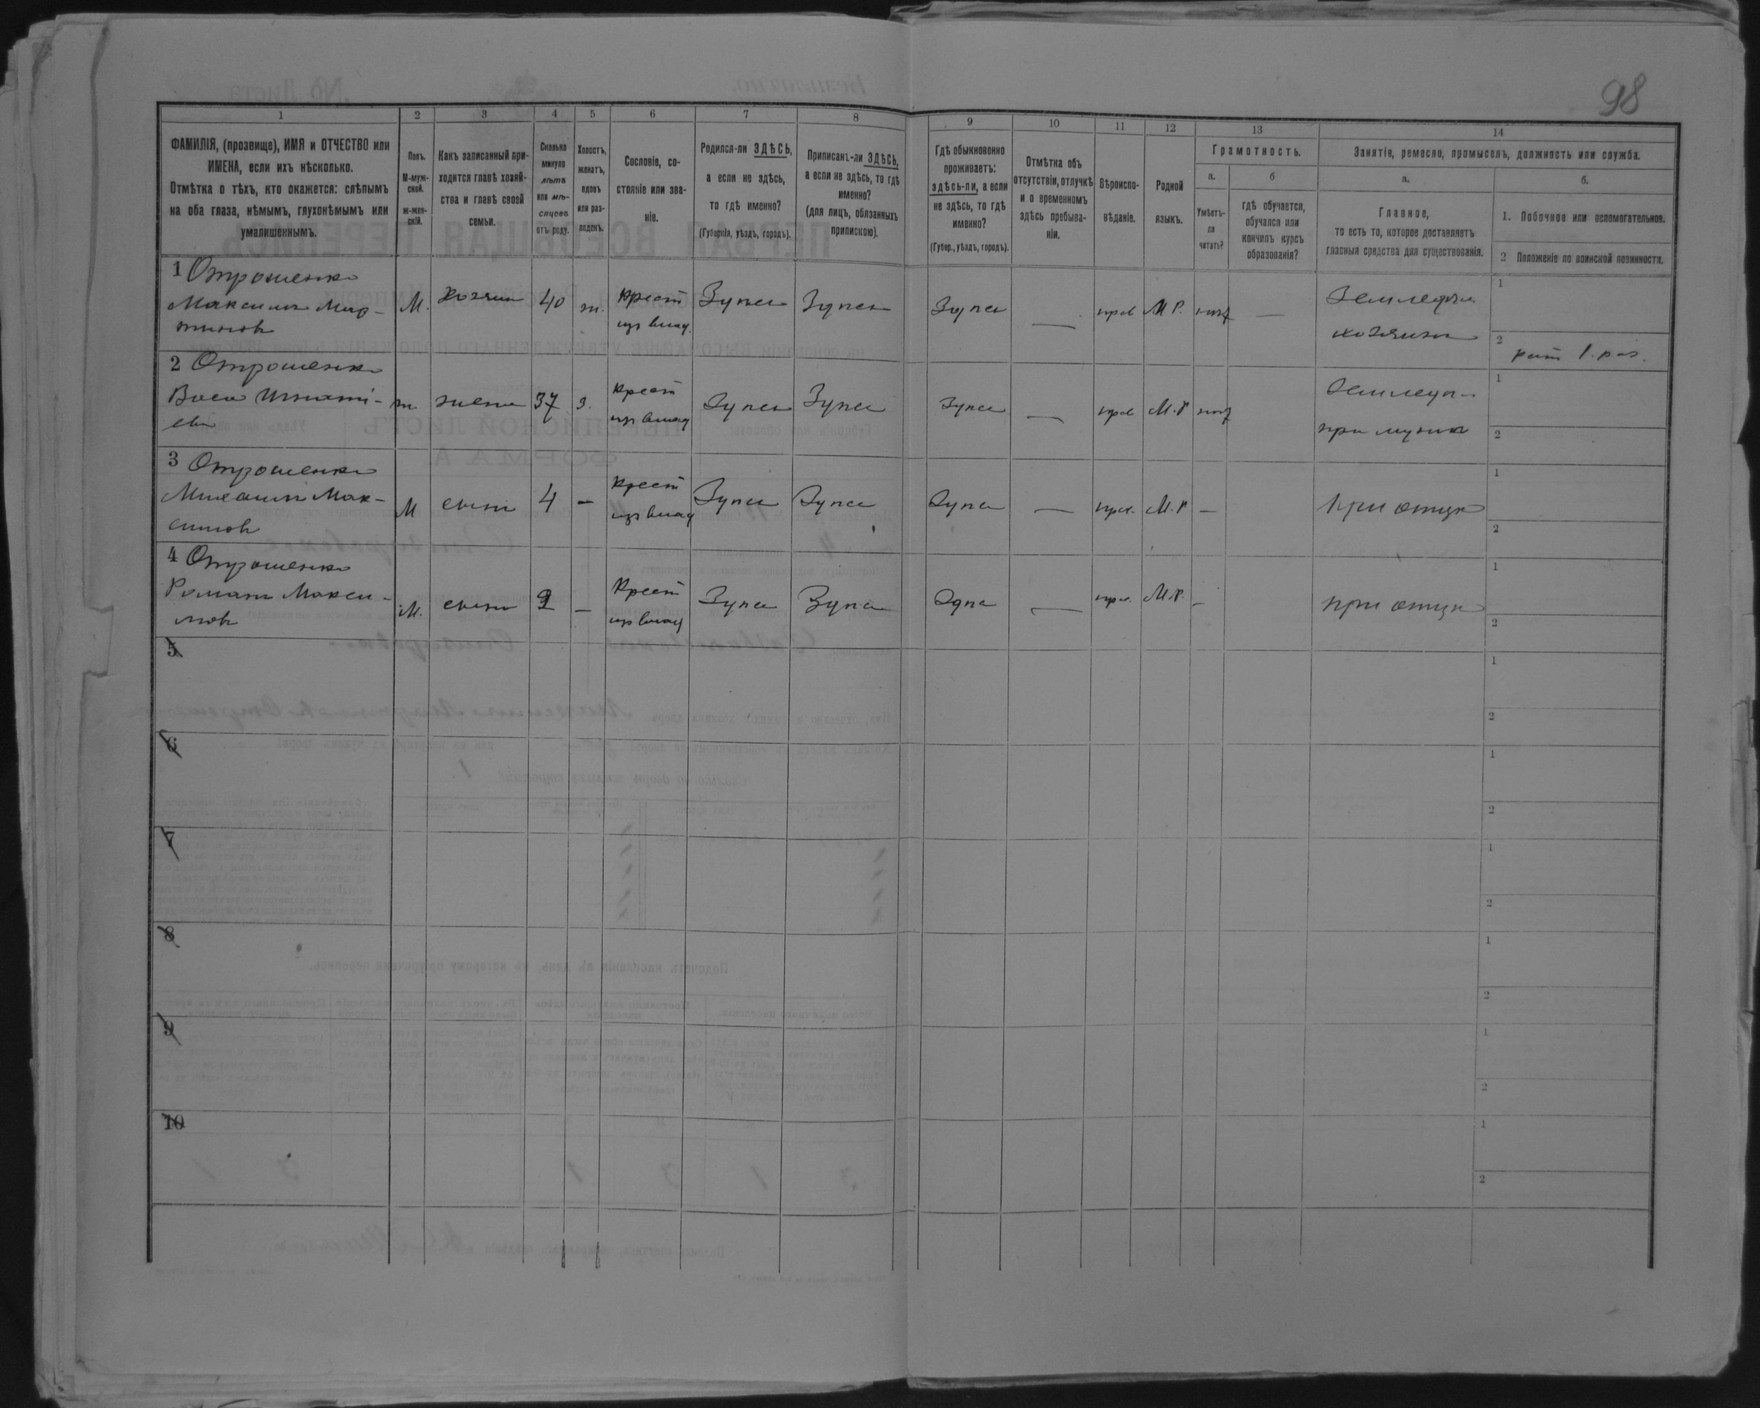 98
1 2 3 4 5 6 7 8 9 10 11 12 13 14
ФАМИЛІЯ, (прозвище), ИМЯ и ОТЧЕСТВО или
ИМЕНА, если ихъ нѣсколько.
Отмѣтка о тѣхъ, кто окажется: слѣпымъ
на оба глаза, нѣмымъ, глухонѣмымъ или
умалишеннымъ.
Полъ.
М-муж-
ской.
ж-жен-
скій.
Какъ записанный при-
ходится главѣ хозяй-
ства и главѣ своей
семьи.
Сколько
минуло
лѣтъ
или мѣ-
сяцевъ
отъ роду.
Холостъ,
женатъ,
вдовъ
или раз-
веденъ.
Сословіе, со-
стояніе или зва-
ніе.
Родился-ли ЗДѢСЬ,
а если не здѣсь,
то гдѣ именно?
(Губернія, уѣздъ, городъ).
Приписанъ-ли ЗДѢСЬ,
а если не здѣсь, то гдѣ
именно?
(для лицъ, обязанныхъ
припискою).
Гдѣ обыкновенно
проживаетъ:
здѣсь-ли, а если
не здѣсь, то гдѣ
именно?
(Губер., уѣздъ, городъ).
Отмѣтка объ
отсутствіи, отлучкѣ
и о временномъ
здѣсь пребыва-
ніи.
Вѣроиспо-
вѣданіе.
Родной
языкъ.
Грамотность.
а.
Умѣетъ-
ли
читать?
б
гдѣ обучается,
обучался или
кончилъ курсъ
образованія?
Занятіе, ремесло, промыселъ, должность или служба.
а.
Главное,
то есть то, которое доставляетъ
главныя средства для существованія.
б.
1. Побочное или вспомогательное.
2 Положеніе по воинской повинности.
1 Отрошенко
Максимъ Мар-
тиновъ
М. хозяин 40 ж. крест
из влад Зупса Зупса Зупса — прав М Р. нигд —
Земледѣл
хозяинъ
1
2 рат 1. раз.
2 Отрошенко
Игнаті-
ева
ж. жена 37 з. крест
из влад Зупса Зупса Зупса — прав М.Р нигд
Земледл
при мужѣ
1
2
3 Отрошенко
Михаилъ Мак-
симовъ
М сынъ 4 — крест
из влад Зупса Зупса Зупса — прав. М.Р —
при отцѣ
1
2
4 Отрошенко
Романъ Макси-
мовъ
М. сынъ 2 — крест
из влад Зупса Зупса Зупса — прав. М.Р. —
при отцѣ
1
2
5
1
2
6
1
2
7
1
2
8
1
2
9
1
2
10
1
2